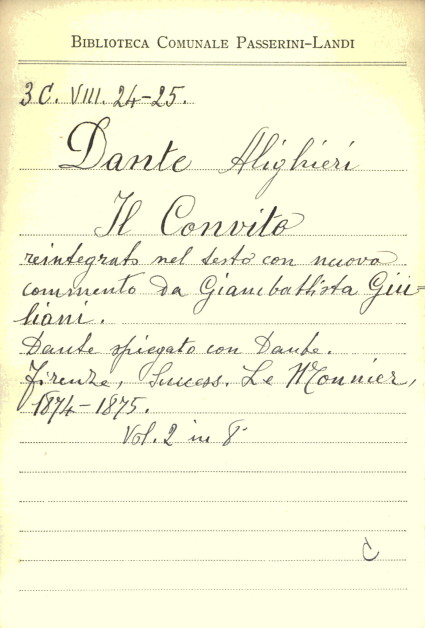 BIBLIOTECA COMUNALE PASSERINI-LANDI
3C. VIII. 24-25.
Dante Alighieri
Il Convito
reintegrato nel testo con nuovo
commento da Giambattista Giu=
liani.
Dante spiegato con Dante.
Firenze, Success. Le Monnier,
1874-1875.
Vol. 2 in 8°
C